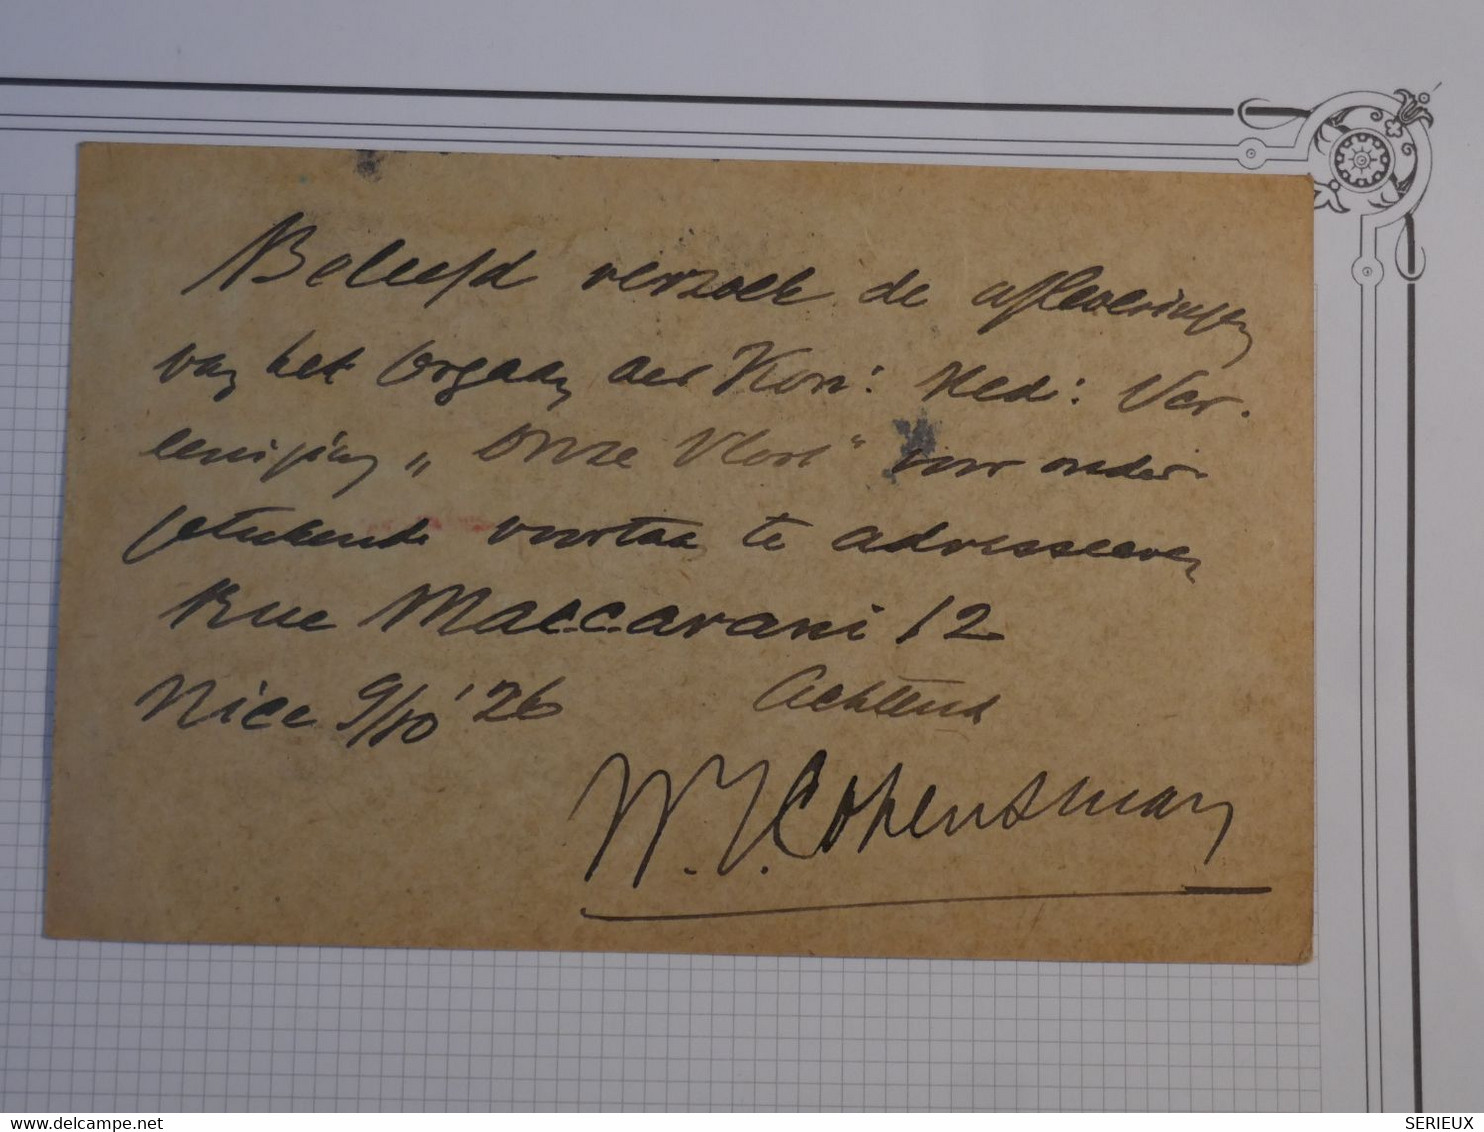 Beleefd verzoek de afleveringen
van het Orgaan der Kon: Ned: Ver-
eeniging „Onze Vloot" voor onder-
getekende voortaan te adresseeren
Rue Maccarani 12
Nice 9/10 '26 Achtend
W. J. Cohensman
SERIEUX